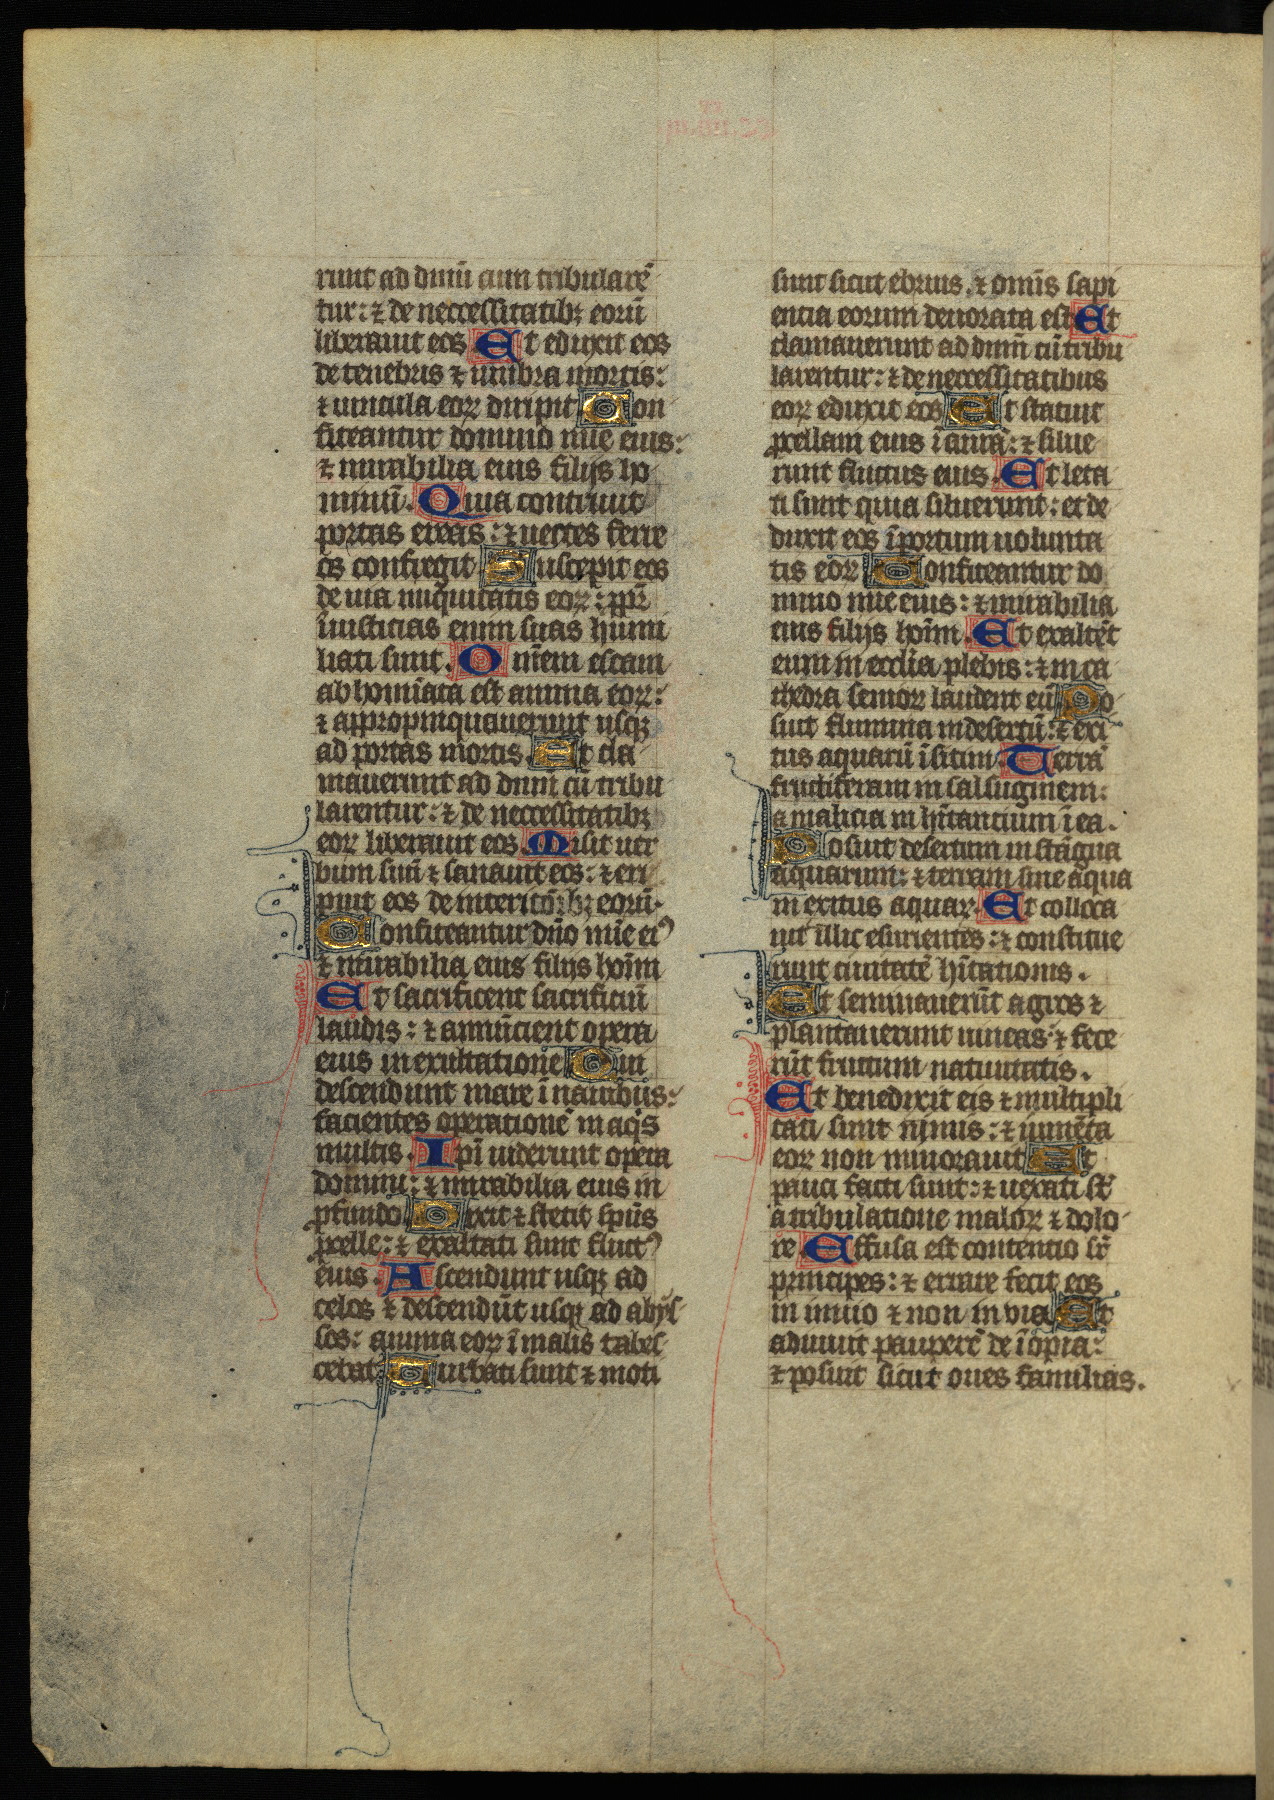 runt ad dnm̄ cum tribulare͞
tur: ⁊ de neccessitatibꝫ eorū
liberauit eos Et eduxit eos
de tenebris ⁊ umbra mortis:
⁊ uincula eoꝝ dirupit Con
fiteantur domino mīe eius:
⁊ mirabilia eius filijs ho
minū. Quia contriuit
portas ereas: ⁊ uectes ferre
os confregit Suscepit eos
de uia iniquitatis eoꝝ: ꝓpt̄
īiusticias enim suas humi
liati sunt. Omnem escam
abhomīata est anima eoꝝ:
⁊ appropinquauerunt usqꝫ
ad portas mortis. Et cla
mauerunt ad dnm̄ cū tribu
larentur: ⁊ de neccessitatibꝫ
eoꝝ liberauit eos. Misit uer
bum suū ⁊ sanauit eos: ⁊ eri
puit eos de interitōībꝫ eorū.
Confiteantur dn̄o mīe eiꝰ
⁊ mirabilia eius filijs hoīm
Et sacrificent sacrificiū
laudis: ⁊ annūcient opera
eius in exultatione Qui
descendunt mare ī nauibus:
facientes operationē in aqͥs
multis. Ipī uiderunt opera
domini: ⁊ mirabilia eius in
ꝓfundo Dixit ⁊ stetit spūs
ꝓcelle: ⁊ exaltati sunt fluctꝰ
eius. Ascendunt usqꝫ ad
celos ⁊ descendūt usqꝫ ad abys
sos: anima eoꝝ ī malis tabes
cebat Turbati sunt ⁊ moti
sunt sicut ebrius, ⁊ omīs sapi
entia eorum deuorata est Et
clamauerunt ad dnm̄ cū tribu
larentur: ⁊ de neccessitatibus
eoꝝ eduxit eos Et statuit
ꝓcellam eius ī aurā: ⁊ silue
runt fluctus eius. Et leta
ti sunt quia siluerunt: et de
duxit eos ī portum uolunta
tis eoꝝ Confiteantur do
mino mīe eius: ⁊ mirabilia
eius filijs hoīm. Et exaltēt
eum in eccl̄ia plebis: ⁊ in ca
thedra senioꝝ laudent eū Po
suit flumina in desertū: ⁊ exi
tus aquarū ī sitim. Terrā
fructiferam in salsuginem:
a malicia inh̄itantium ī ea.
Posuit desertum in stāgna
aquarum: ⁊ terram sine aqua
in exitus aquaꝝ. Et colloca
uit illic esurientes: ⁊ constitue
runt ciuitatē h̄itationis.
Et seminauerūt agros ⁊
plantauerunt uineas: ⁊ fece
rūt fructum natiuitatis.
Et benedixit eis ⁊ multipli
cati sunt nimis: ⁊ iumēta
eoꝝ non minorauit Et
pauci facti sunt: ⁊ uexati st̄
a tribulatione maloꝝ ⁊ dolo
re Effusa est contentio sr̄
principes: ⁊ errare fecit eos
in inuio ⁊ non in via Et
adiuuit pauperē de īopia:
⁊ posuit sicut oues familias.